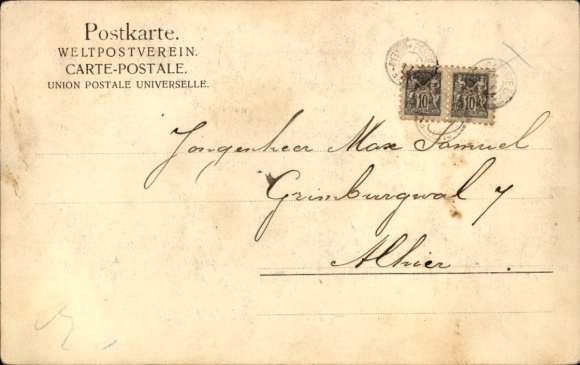 Postkarte.
WELTPOSTVEREIN.
CARTE-POSTALE.
UNION POSTALE UNIVERSELLE.
10 10
Jongenheer Max Samuel
Grimburgwal 7
Alhier.